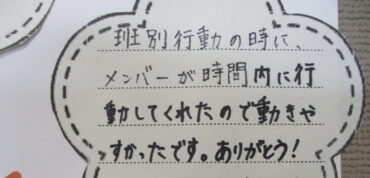 班別行動の時に、
メンバーが時間内に行
動してくれたので動きや
すかったです。ありがとう!